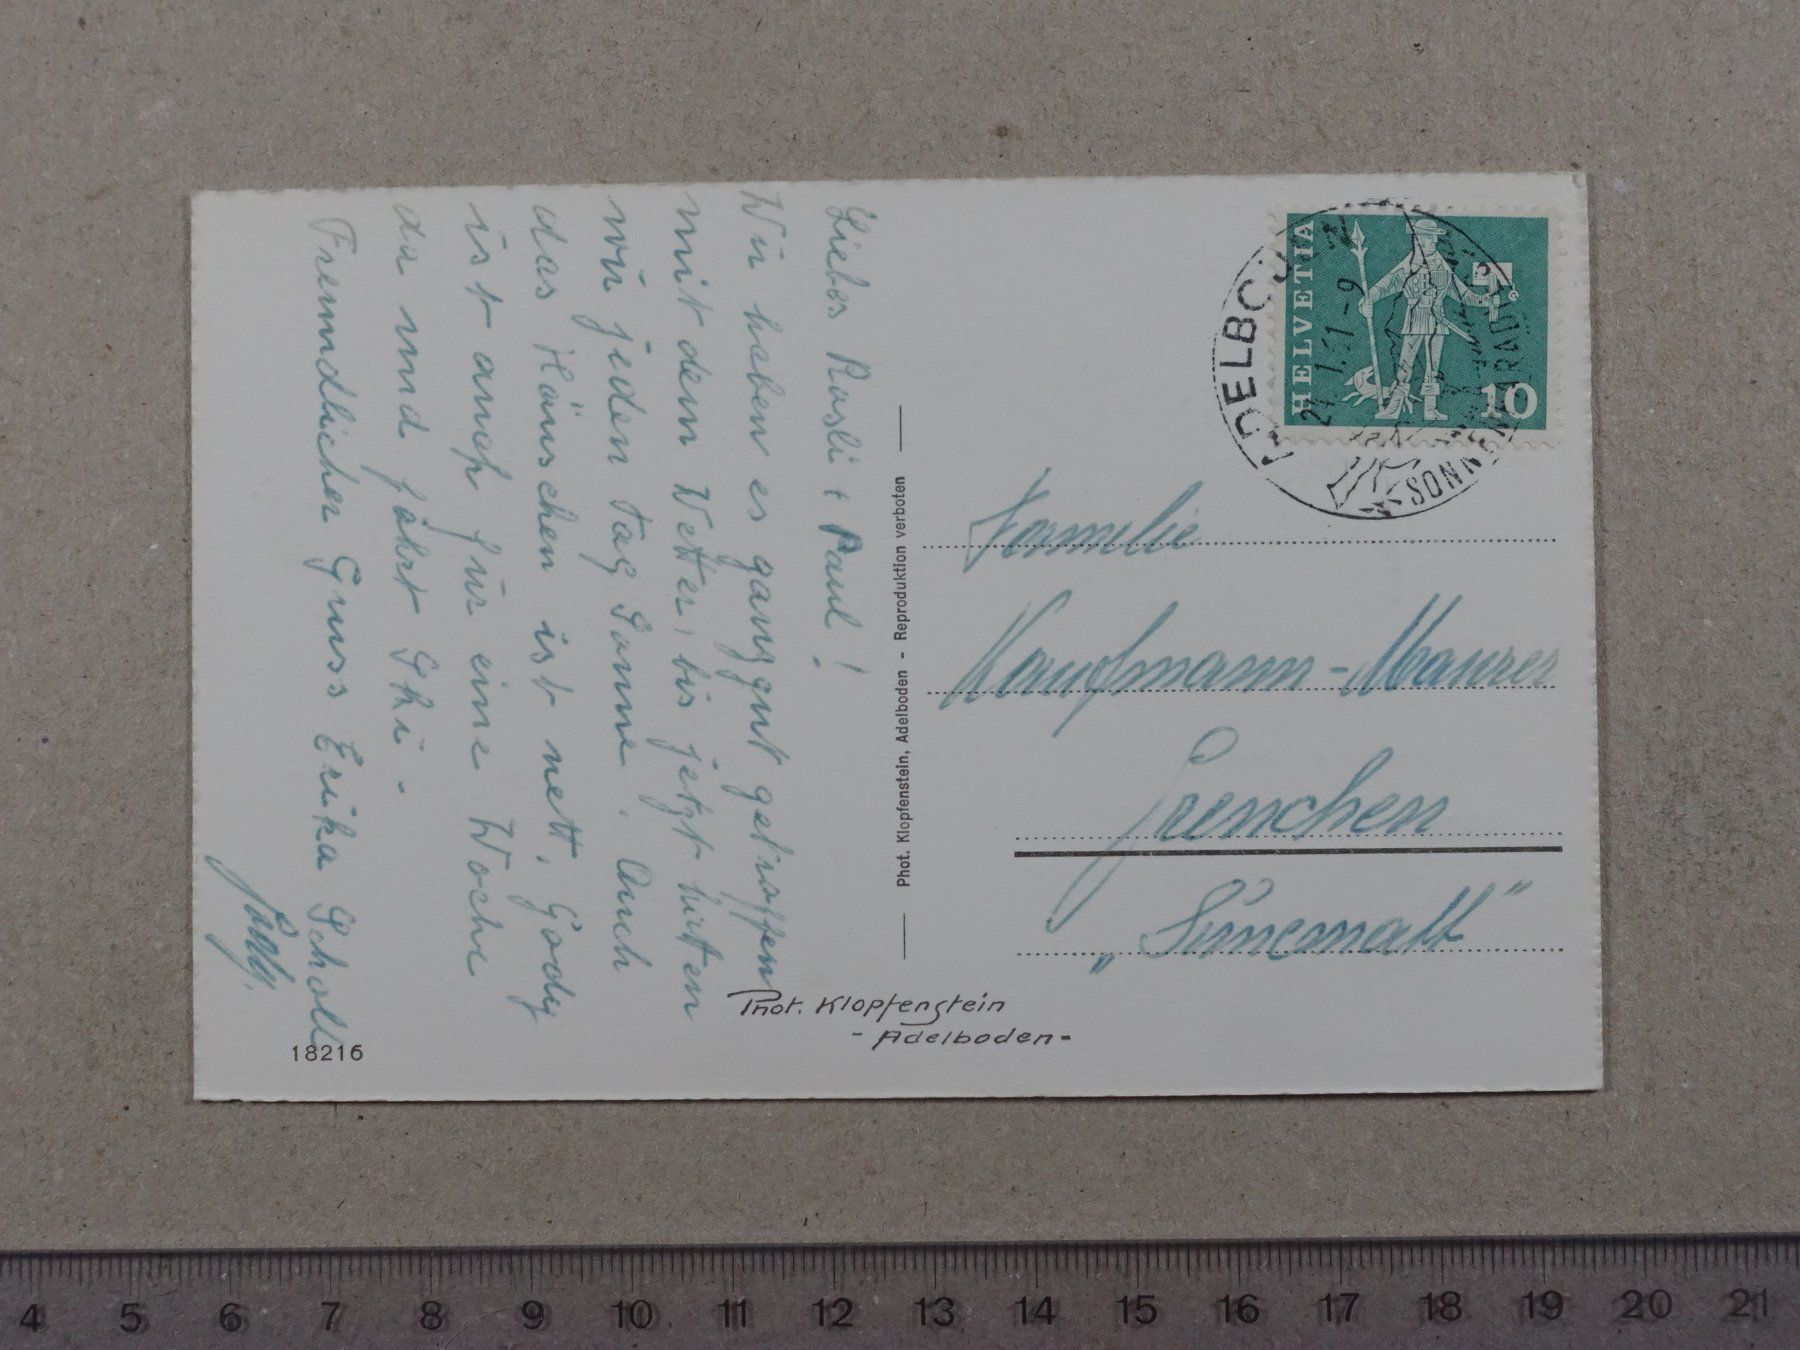 Liebes Rosli + Paul!
Wir haben es ganz gut getroffen
mit dem Wetter, bis jetzt hatten
wir jeden Tag Sonne. Auch
das Häuschen ist nett, Gody
ist auch für eine Woche
da und fährt Ski.
Freundlicher Gruss Erika Scholl
Gody.
18216
Phot. Klopfenstein, Adelboden - Reproduktion verboten
Phot. Klopfenstein
- Adelboden -
HELVETIA
10
ADELBODEN
21.1.61-9
Familie
Kaufmann-Maurer
Grenchen
„Sunematt"
4 5 6 7 8 9 10 11 12 13 14 15 16 17 18 19 20 21